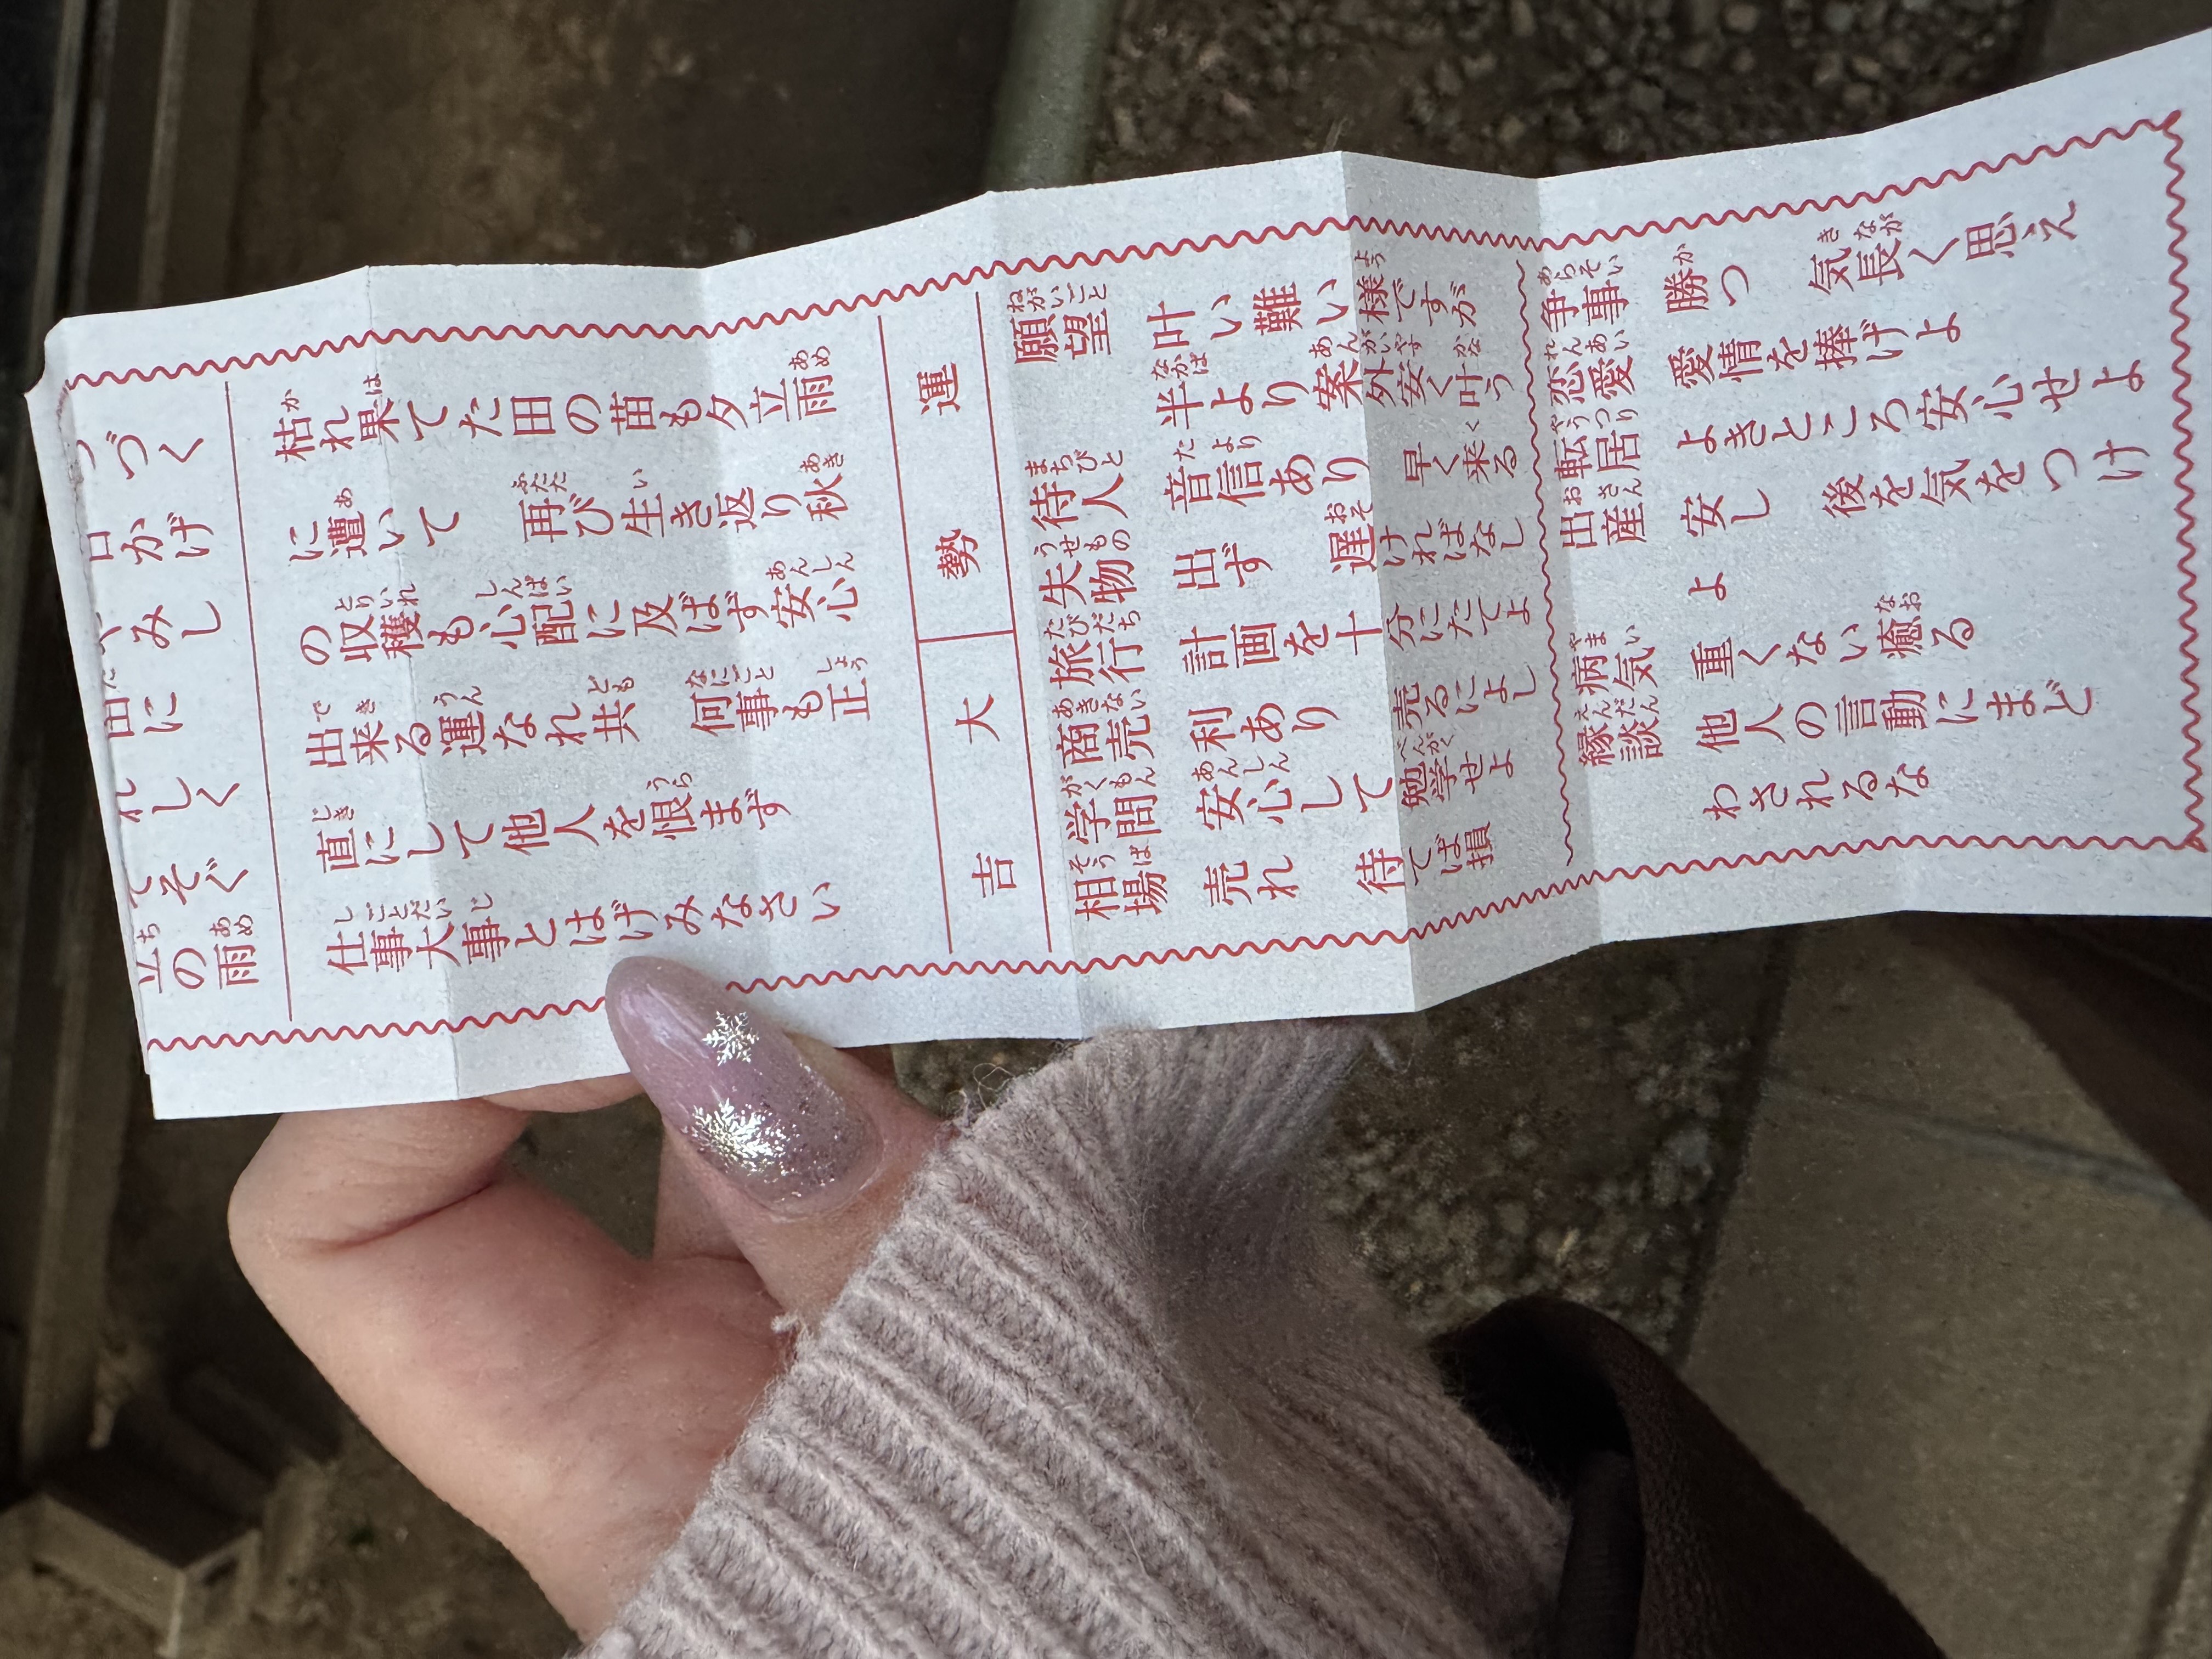 づく
かげ
みし
田に
れしく
てそぐ
立の雨
枯れ果てた田の苗も夕立雨
に遭いて 再び生き返り秋
の収穫も心配に及ばず安心
出来る運なれ共 何事も正
直にして他人を恨まず
仕事大事とはげみなさい
運勢 大吉
願望 叶い難い様ですが
半より案外安く叶う
待人 音信あり 早く来る
失物 出ず 遅ければなし
旅行 計画を十分にたてよ
商売 利あり 売るによし
学問 安心して勉学せよ
相場 売れ 待てば損
争事 勝つ 気長く思え
恋愛 愛情を捧げよ
転居 よきところ安心せよ
出産 安し 後を気をつけ
よ
病気 重くない癒る
縁談 他人の言動にまど
わされるな